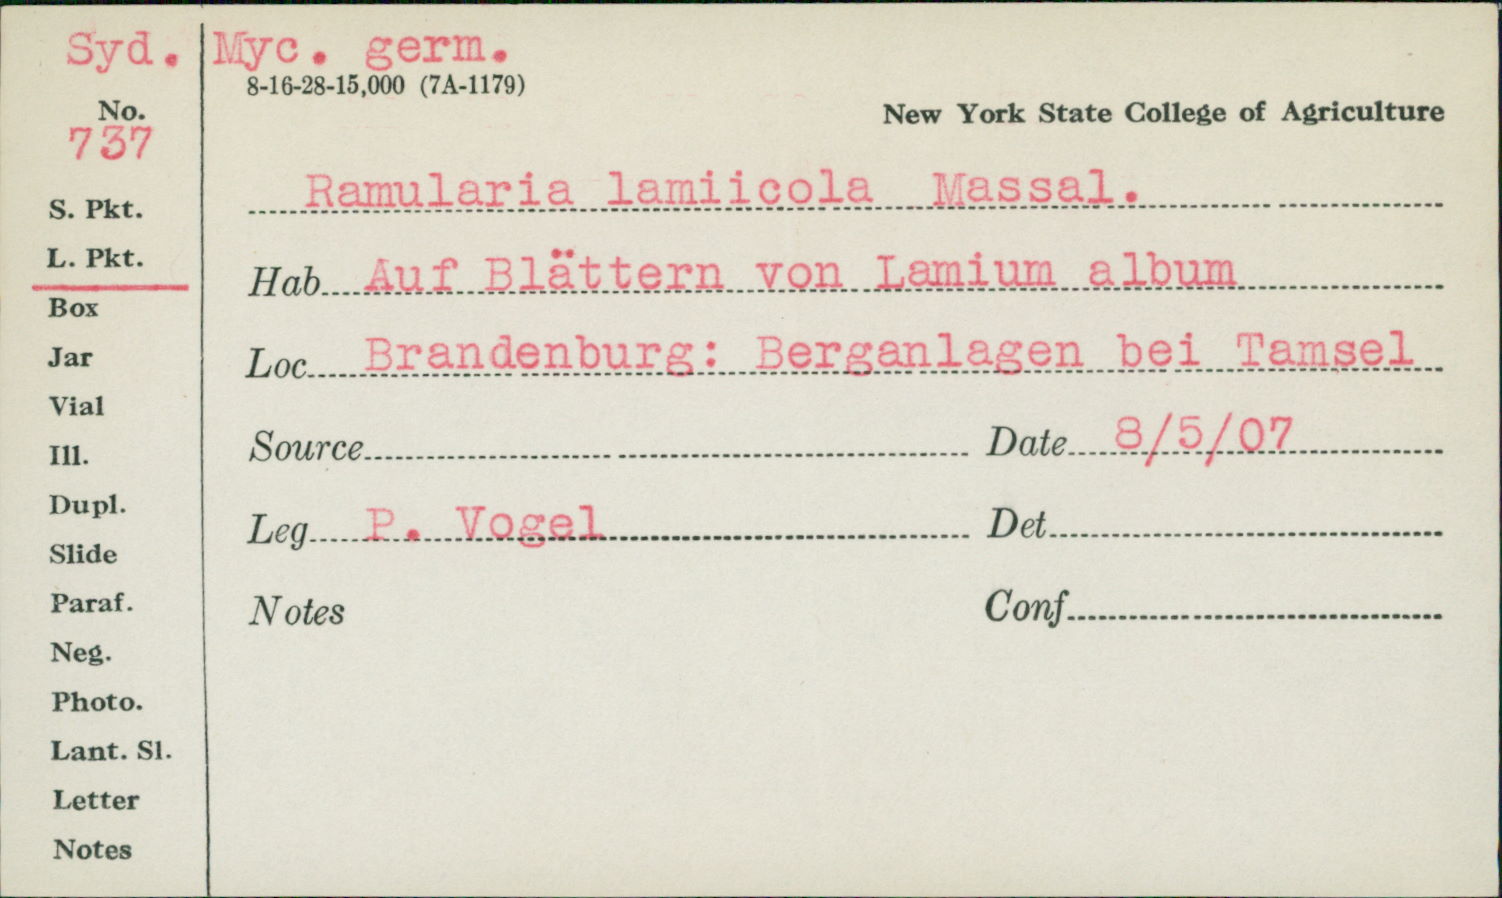 Syd. Myc. germ.
8-16-28-15,000 (7A-1179)
New York State College of Agriculture
No.
737
S. Pkt.
L. Pkt.
Box
Jar
Vial
Ill.
Dupl.
Slide
Paraf.
Neg.
Photo.
Lant. Sl.
Letter
Notes
Ramularia lamiicola Massal.
Hab Auf Blättern von Lamium album
Loc Brandenburg: Berganlagen bei Tamsel
Source Date 8/5/07
Leg P. Vogel Det
Notes Conf